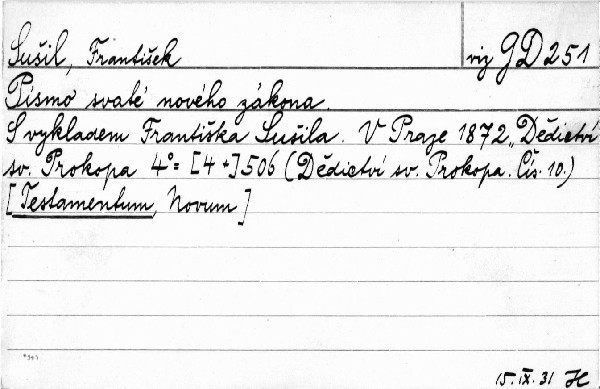 Sušil, František viz GD251
Písmo svaté nového zákona.
S vykladem Františka Sušila. V Praze 1872 „Dědictví
sv. Prokopa 4°= [4+] 506 (Dědictví sv. Prokopa. Čís. 10.)
[Testamentum, Novum]
15. IX. 31 H